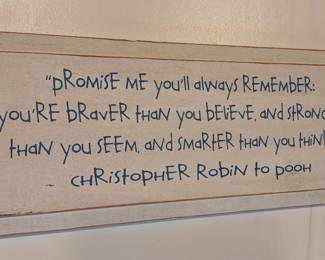 "PROMISE ME you'll always REMEMBER:
you'RE BRAVER THAN you BELIEVE, and STRON
THAN you SEEM, and SMARTER THAN you THIN
CHRISTOPHER ROBIN to POOH